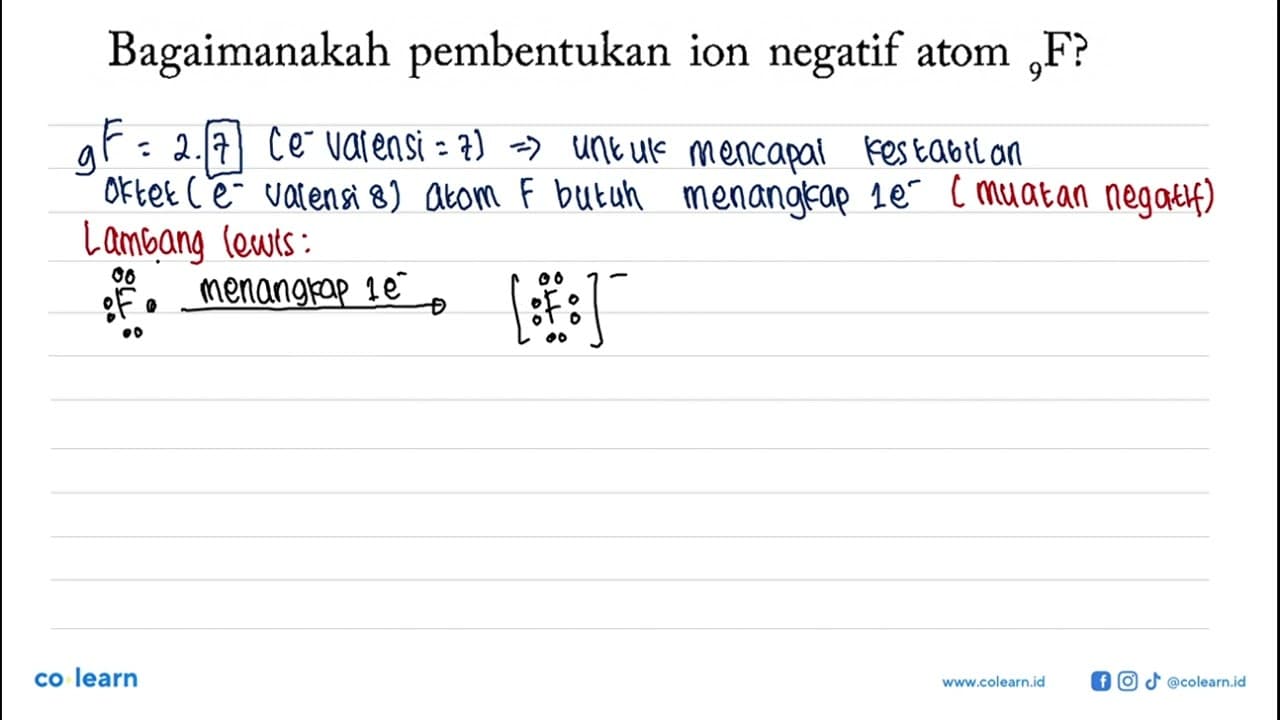 Bagaimanakah pembentukan ion negatif atom ₉F?
₉F = 2.7 (e⁻ valensi = 7) => untuk mencapai kestabilan
oktet (e⁻ valensi 8) atom F butuh menangkap 1e⁻ (muatan negatif)
Lambang lewis:
F menangkap 1e⁻ [F]⁻
co learn
www.colearn.id @colearn.id